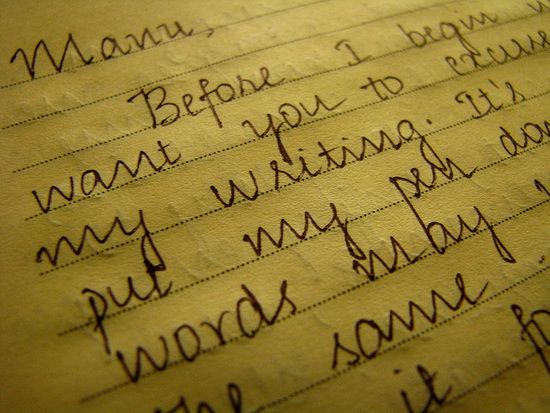 Manu,
Before I begin
want you to excuse
my writing. It's
put my pen do
words may
the same
it fo